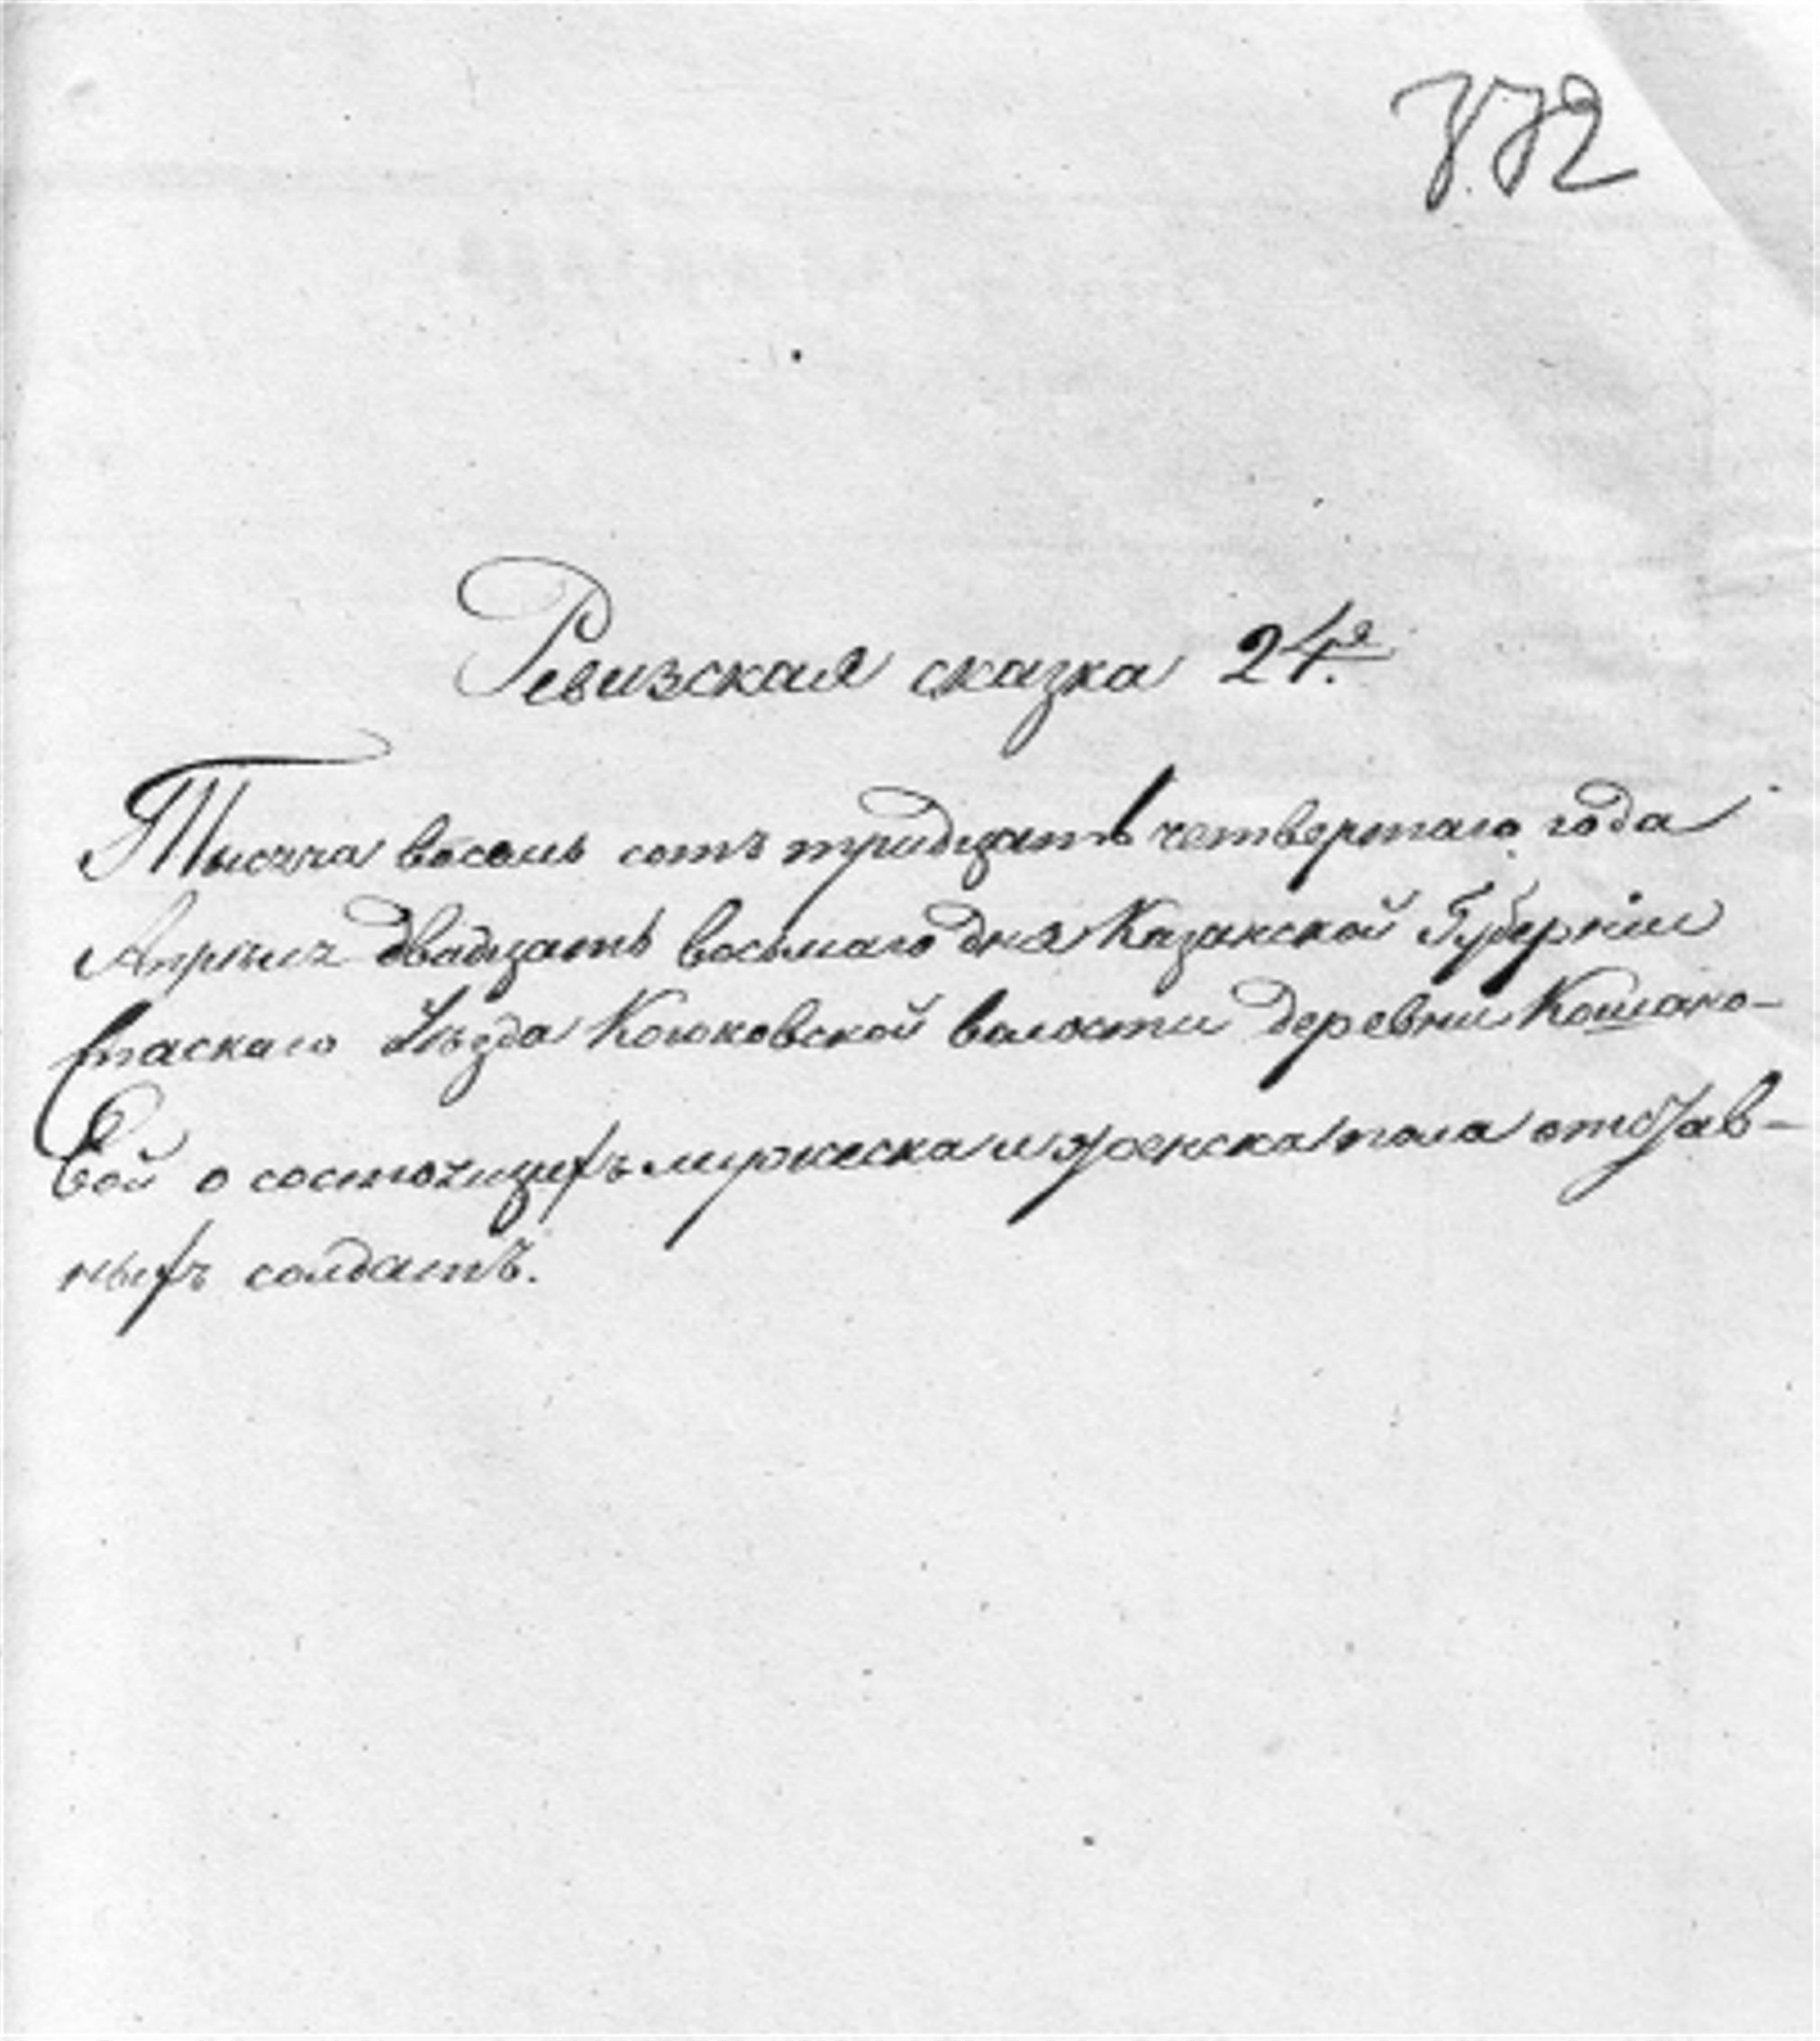 772
Ревизская сказка 24я
Тысяча восемь сотъ тридцать четвертаго года
Апреля двадцать восьмаго дня Казанской Губерніи
Спаскаго Уѣзда Кокжовской волости деревни Кошако-
вой о состоящихъ мужеска и женска пола отстав-
ныхъ солдатъ.